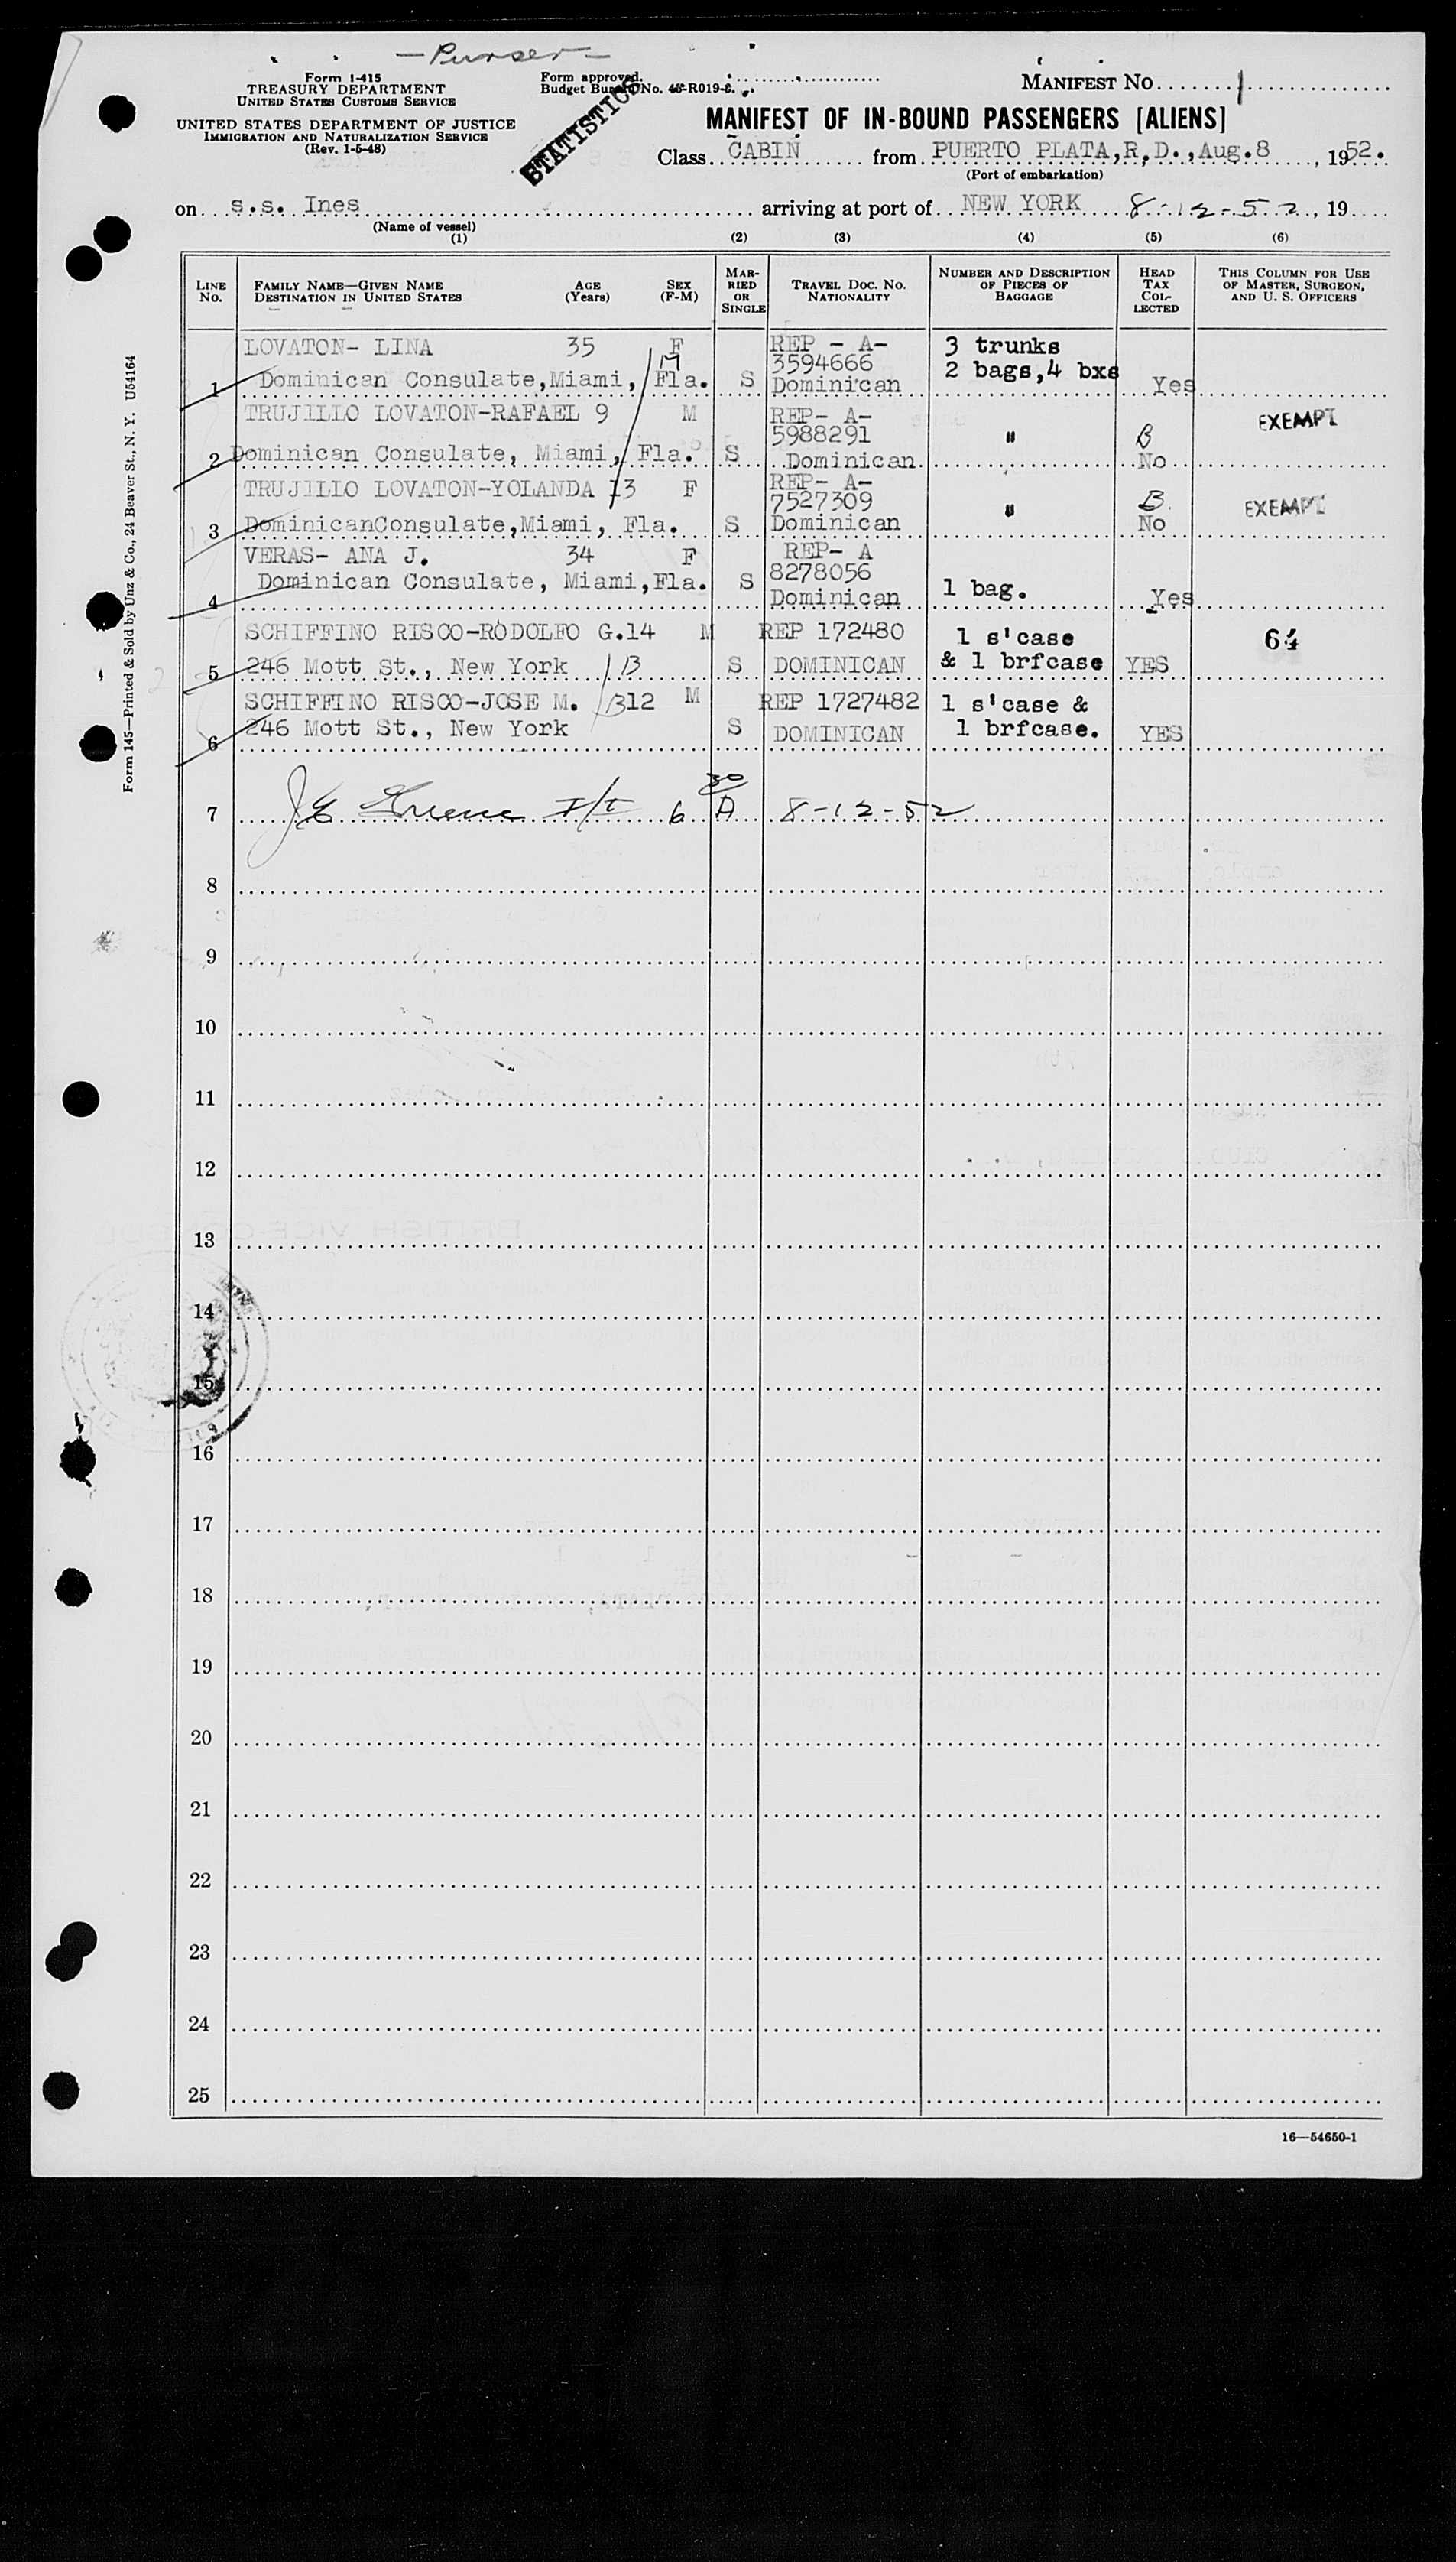 - Purser -
Form I-415
TREASURY DEPARTMENT
UNITED STATES CUSTOMS SERVICE
UNITED STATES DEPARTMENT OF JUSTICE
IMMIGRATION AND NATURALIZATION SERVICE
(Rev. 1-5-48)
Form approved.
Budget Bureau No. 43-R019-2.
STATISTICS
MANIFEST No. 1
MANIFEST OF IN-BOUND PASSENGERS [ALIENS]
Class CABIN from PUERTO PLATA,R,D.,Aug.8, 1952.
(Port of embarkation)
on s.s. Ines arriving at port of NEW YORK 8-12-52, 19
(Name of vessel)
(1) (2) (3) (4) (5) (6)
LINE No.
FAMILY NAME—GIVEN NAME
DESTINATION IN UNITED STATES
AGE (Years)
SEX (F-M)
MARRIED OR SINGLE
TRAVEL DOC. NO. NATIONALITY
NUMBER AND DESCRIPTION OF PIECES OF BAGGAGE
HEAD TAX COLLECTED
THIS COLUMN FOR USE OF MASTER, SURGEON, AND U. S. OFFICERS
LOVATON- LINA 35 F REP - A- 3594666 3 trunks
1 Dominican Consulate,Miami, Fla. S Dominican 2 bags,4 bxs Yes
TRUJILLO LOVATON-RAFAEL 9 M REP- A- 5988291 " B EXEMPT
2 Dominican Consulate, Miami, Fla. S Dominican No
TRUJILLO LOVATON-YOLANDA 13 F REP- A- 7527309 " B. EXEMPT
3 DominicanConsulate,Miami, Fla. S Dominican No
VERAS- ANA J. 34 F REP- A 8278056
4 Dominican Consulate, Miami,Fla. S Dominican 1 bag. Yes
SCHIFFINO RISCO-RODOLFO G.14 M REP 172480 1 s'case 64
5 246 Mott St., New York B S DOMINICAN & 1 brfcase YES
SCHIFFINO RISCO-JOSE M. B12 M REP 1727482 1 s'case &
6 246 Mott St., New York S DOMINICAN 1 brfcase. YES
7 6 30 A 8-12-52
8
9
10
11
12
13
14
15
16
17
18
19
20
21
22
23
24
25
16—54650-1
Form 145—Printed & Sold by Unz & Co., 24 Beaver St., N. Y. U54164